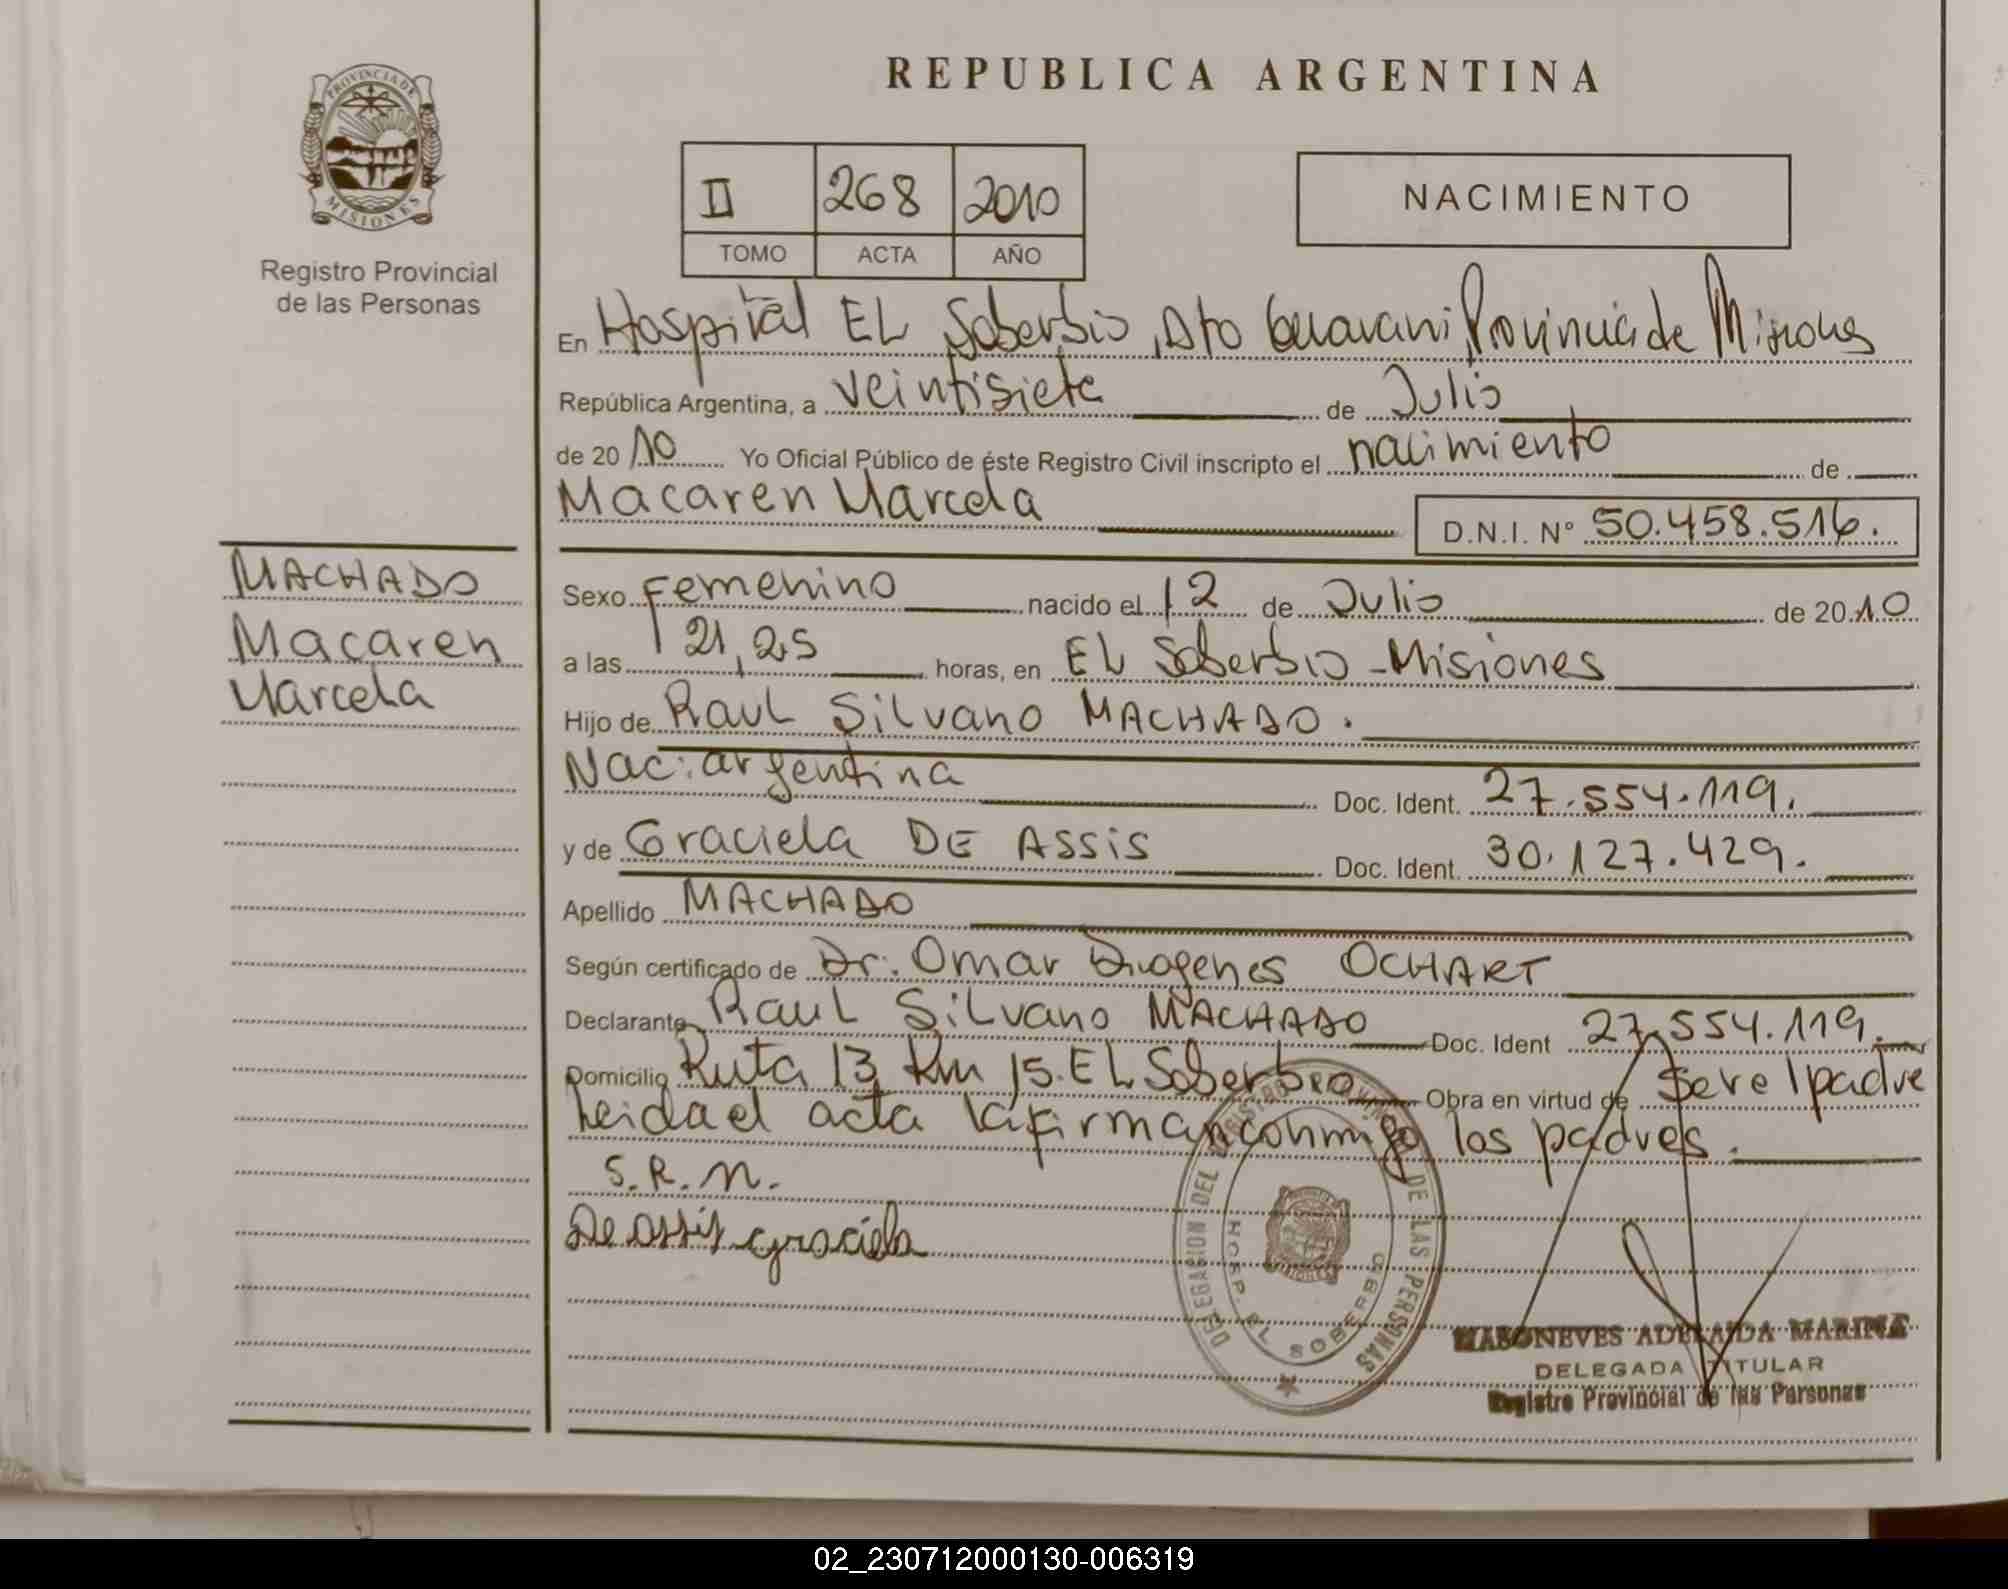 REPUBLICA ARGENTINA
PROVINCIA DE
MISIONES
Registro Provincial
de las Personas
II 268 2010
TOMO ACTA AÑO
NACIMIENTO
En Hospital EL Soberbio, Dto Guarani, Provincia de Misiones
República Argentina, a veintisiete de Julio
de 20 10 Yo Oficial Público de éste Registro Civil inscripto el nacimiento de
Macaren Marcela
D.N.I. N° 50.458.516.
MACHADO
Macaren
Marcela
Sexo Femenino nacido el 12 de Julio de 20 10
a las 21,25 horas, en EL Soberbio - Misiones
Hijo de Raul Silvano MACHADO.
Nac: argentina Doc. Ident. 27.554.119.
y de Graciela DE ASSiS Doc. Ident. 30.127.429.
Apellido MACHADO
Según certificado de Dr. Omar Diogenes OCHART
Declarante Raul Silvano MACHADO Doc. Ident 27.554.119.
Domicilio Ruta 13 Km 15. EL Soberbio Obra en virtud de ser el padre
Leida el acta la firman conmigo los padres.
S.R.M.
De assis graciela
DELEGACION DEL REGISTRO PROVINCIAL DE LAS PERSONAS
HOSP. EL SOBERBIO
MASONEVES ADELAIDA MARINA
DELEGADA TITULAR
Registro Provincial de las Personas
02_230712000130-006319